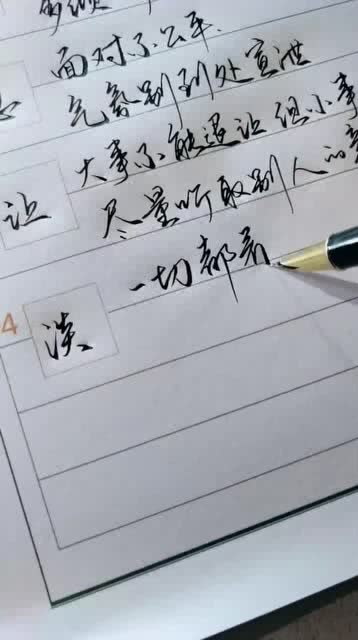 面对不公平
气容别到处宣泄
让
大事不能遇让 但小事
尽量听取别人的意
4
淡
一切都看